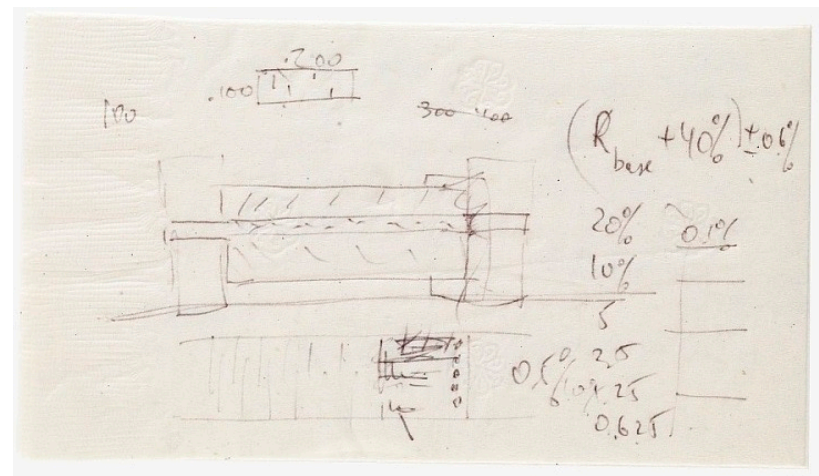 .200
.100
100
300 400
(R base +40%) ± 0.6%
20% 0.1%
10%
5
0.5% 2.5
1.25
0.625